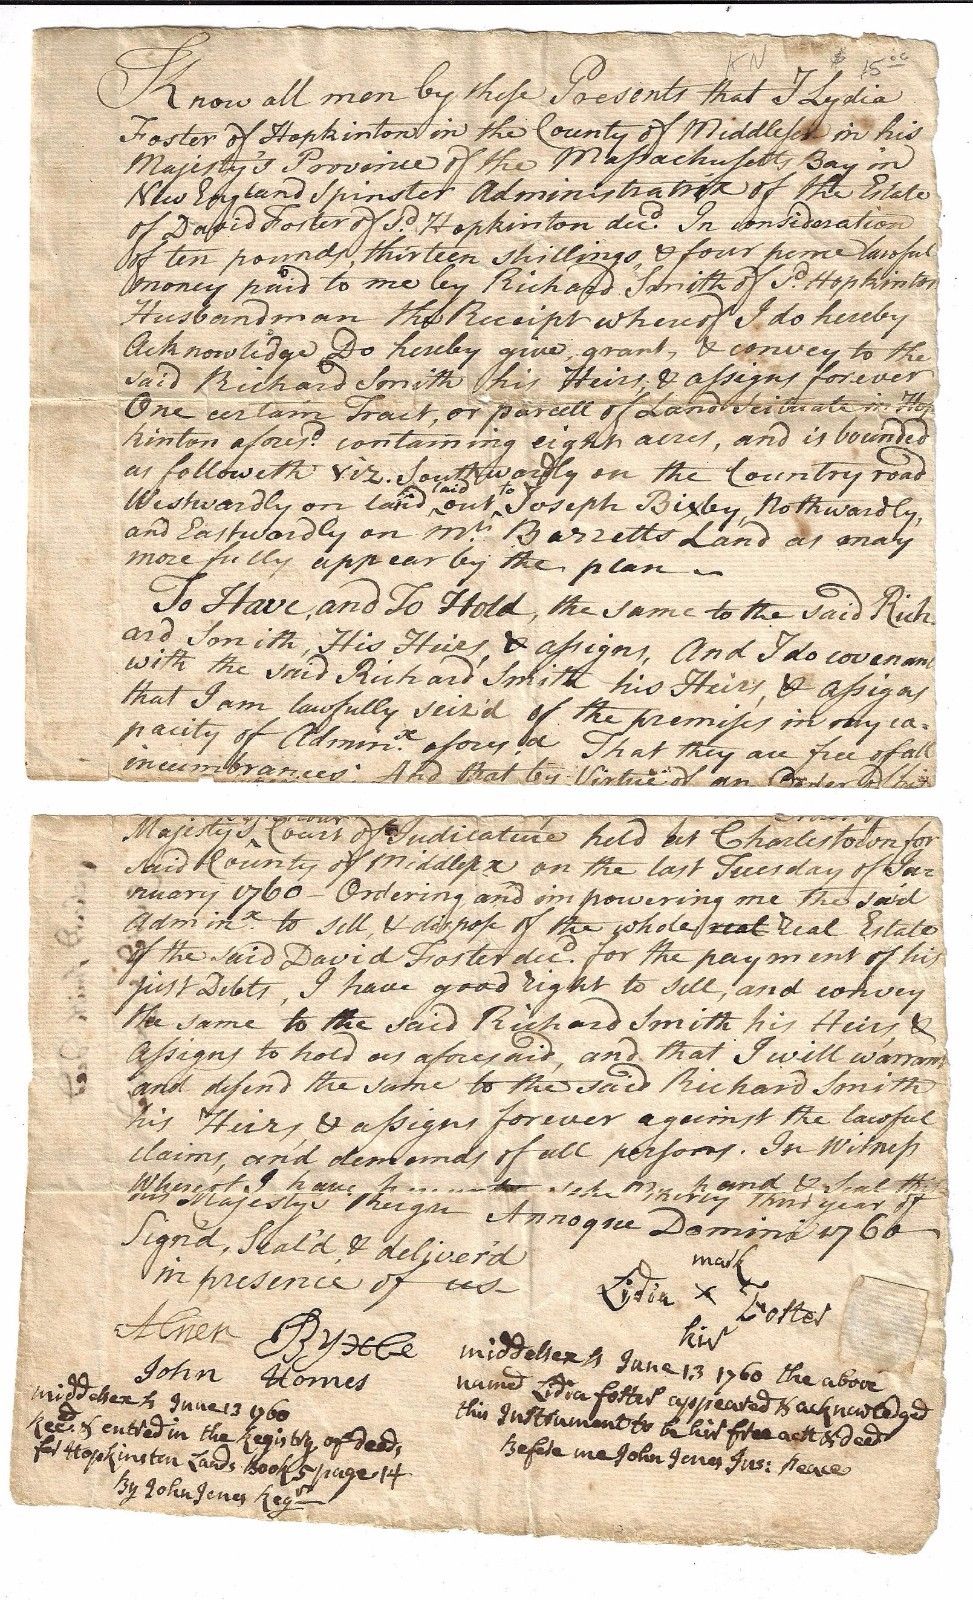 KN $ 15.00
Know all men by these Presents that I Lydia
Foster of Hopkinton in the County of Middlesex in his
Majesty's Province of the Massachusetts Bay in
New England Spinster Administratrix of the Estate
of David Foster of Sd. Hopkinton decd. In consideration
of ten pounds, thirteen shillings, & four pence lawful
money paid to me by Richard Smith of Sd. Hopkinton
Husbandman the Receipt whereof I do hereby
Acknowledge Do hereby give, grant, & convey to the
said Richard Smith his Heirs, & assigns forever
One certain Tract, or parcell of Land scituate in Hop
kinton aforesd. containing eight acres, and is bounded
as followeth viz. Southwardly on the Country road
Westwardly on land laid out to Joseph Bixby, Nothwardly,
and Eastwardly on Barretts Land as may
more fully appear by the plan
To Have, and To Hold, the same to the said Rich
ard Smith, His Heirs, & assigns, And I do covenant
with the said Richard Smith his Heirs, & Assigns
that I am lawfully seiz'd of the premises in my ca-
pacity of Adminx. afores'd That they are free of all
incumbrances: And that by Virtue of an Order of his
Majesty's Court of Judicature held at Charlestown for
said County of Middlesex on the last Tuesday of Ja-
nuary 1760 - Ordering and impowering me the said
Adminx to sell, & dispose of the whole real real Estate
of the said David Foster decd. for the payment of his
just Debts, I have good right to sell, and convey
the same to the said Richard Smith his Heirs, &
Assigns to hold as aforesaid, and that I will warrant
and defend the same to the said Richard Smith
his Heirs, & assigns forever against the lawful
claims, and demands of all persons. In Witness
Whereof I have hand & Seal this
his Majestys Reign thirty third year of
Annoque Domini 1760
Sign'd, Seal'd, & deliver'd
in presence of us
mark
Lydia x Foster
his
Abner Byxbe
John Jones
middlesex ss June 13 1760 the above
named Lidia foster appeared & acknowledged
this Instrument to be his free act & deed
Before me John Jones Jus: peace
middlesex ss June 13 1760
Recd & entred in the Registry of deeds
for Hopkinston Lands Book 5 page 14
By John Jones Regr